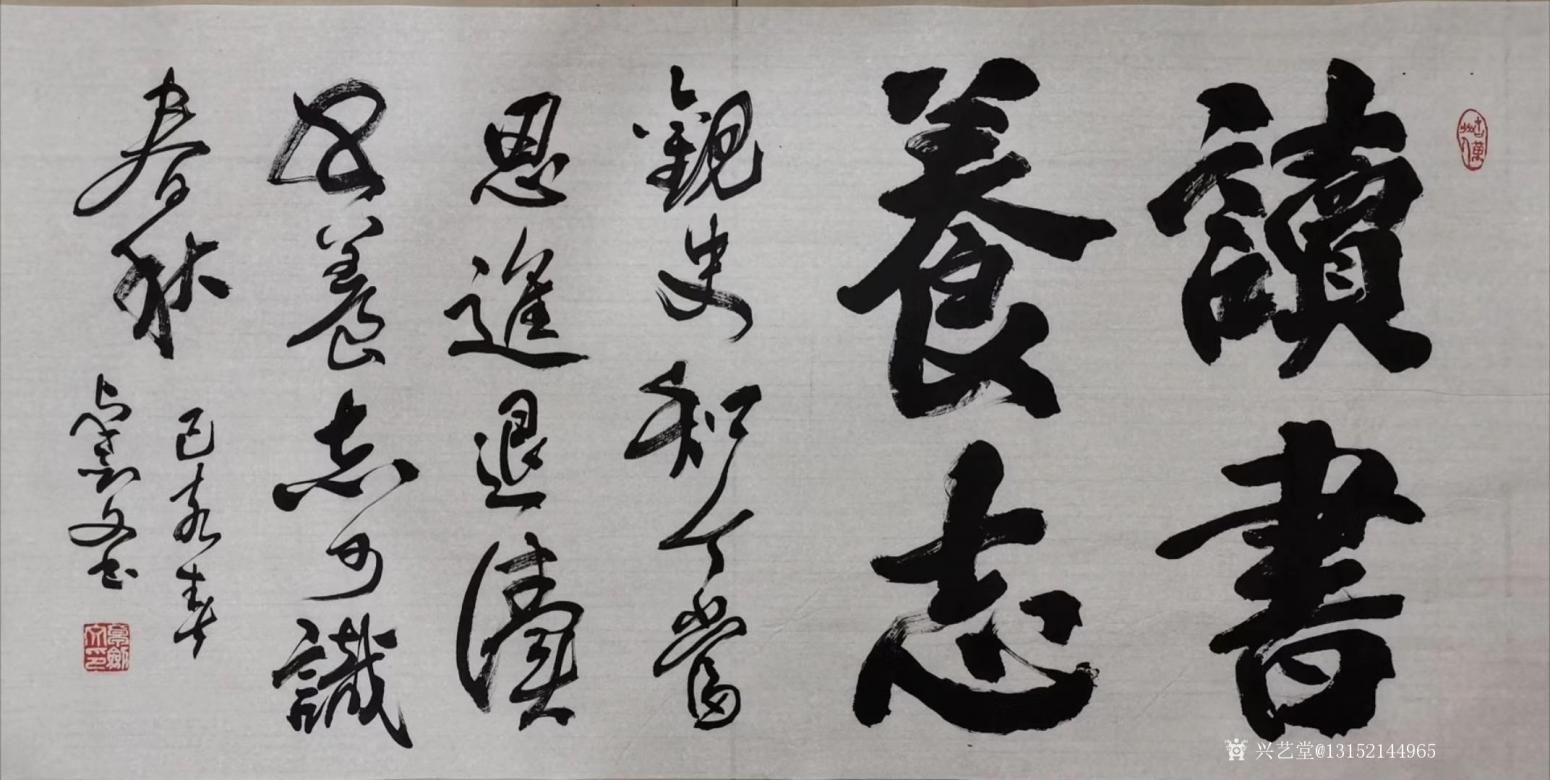 讀書
養志
觀史知今當
思進退讀
書養志可識
春秋
己亥春
文書
兴艺堂@13152144965